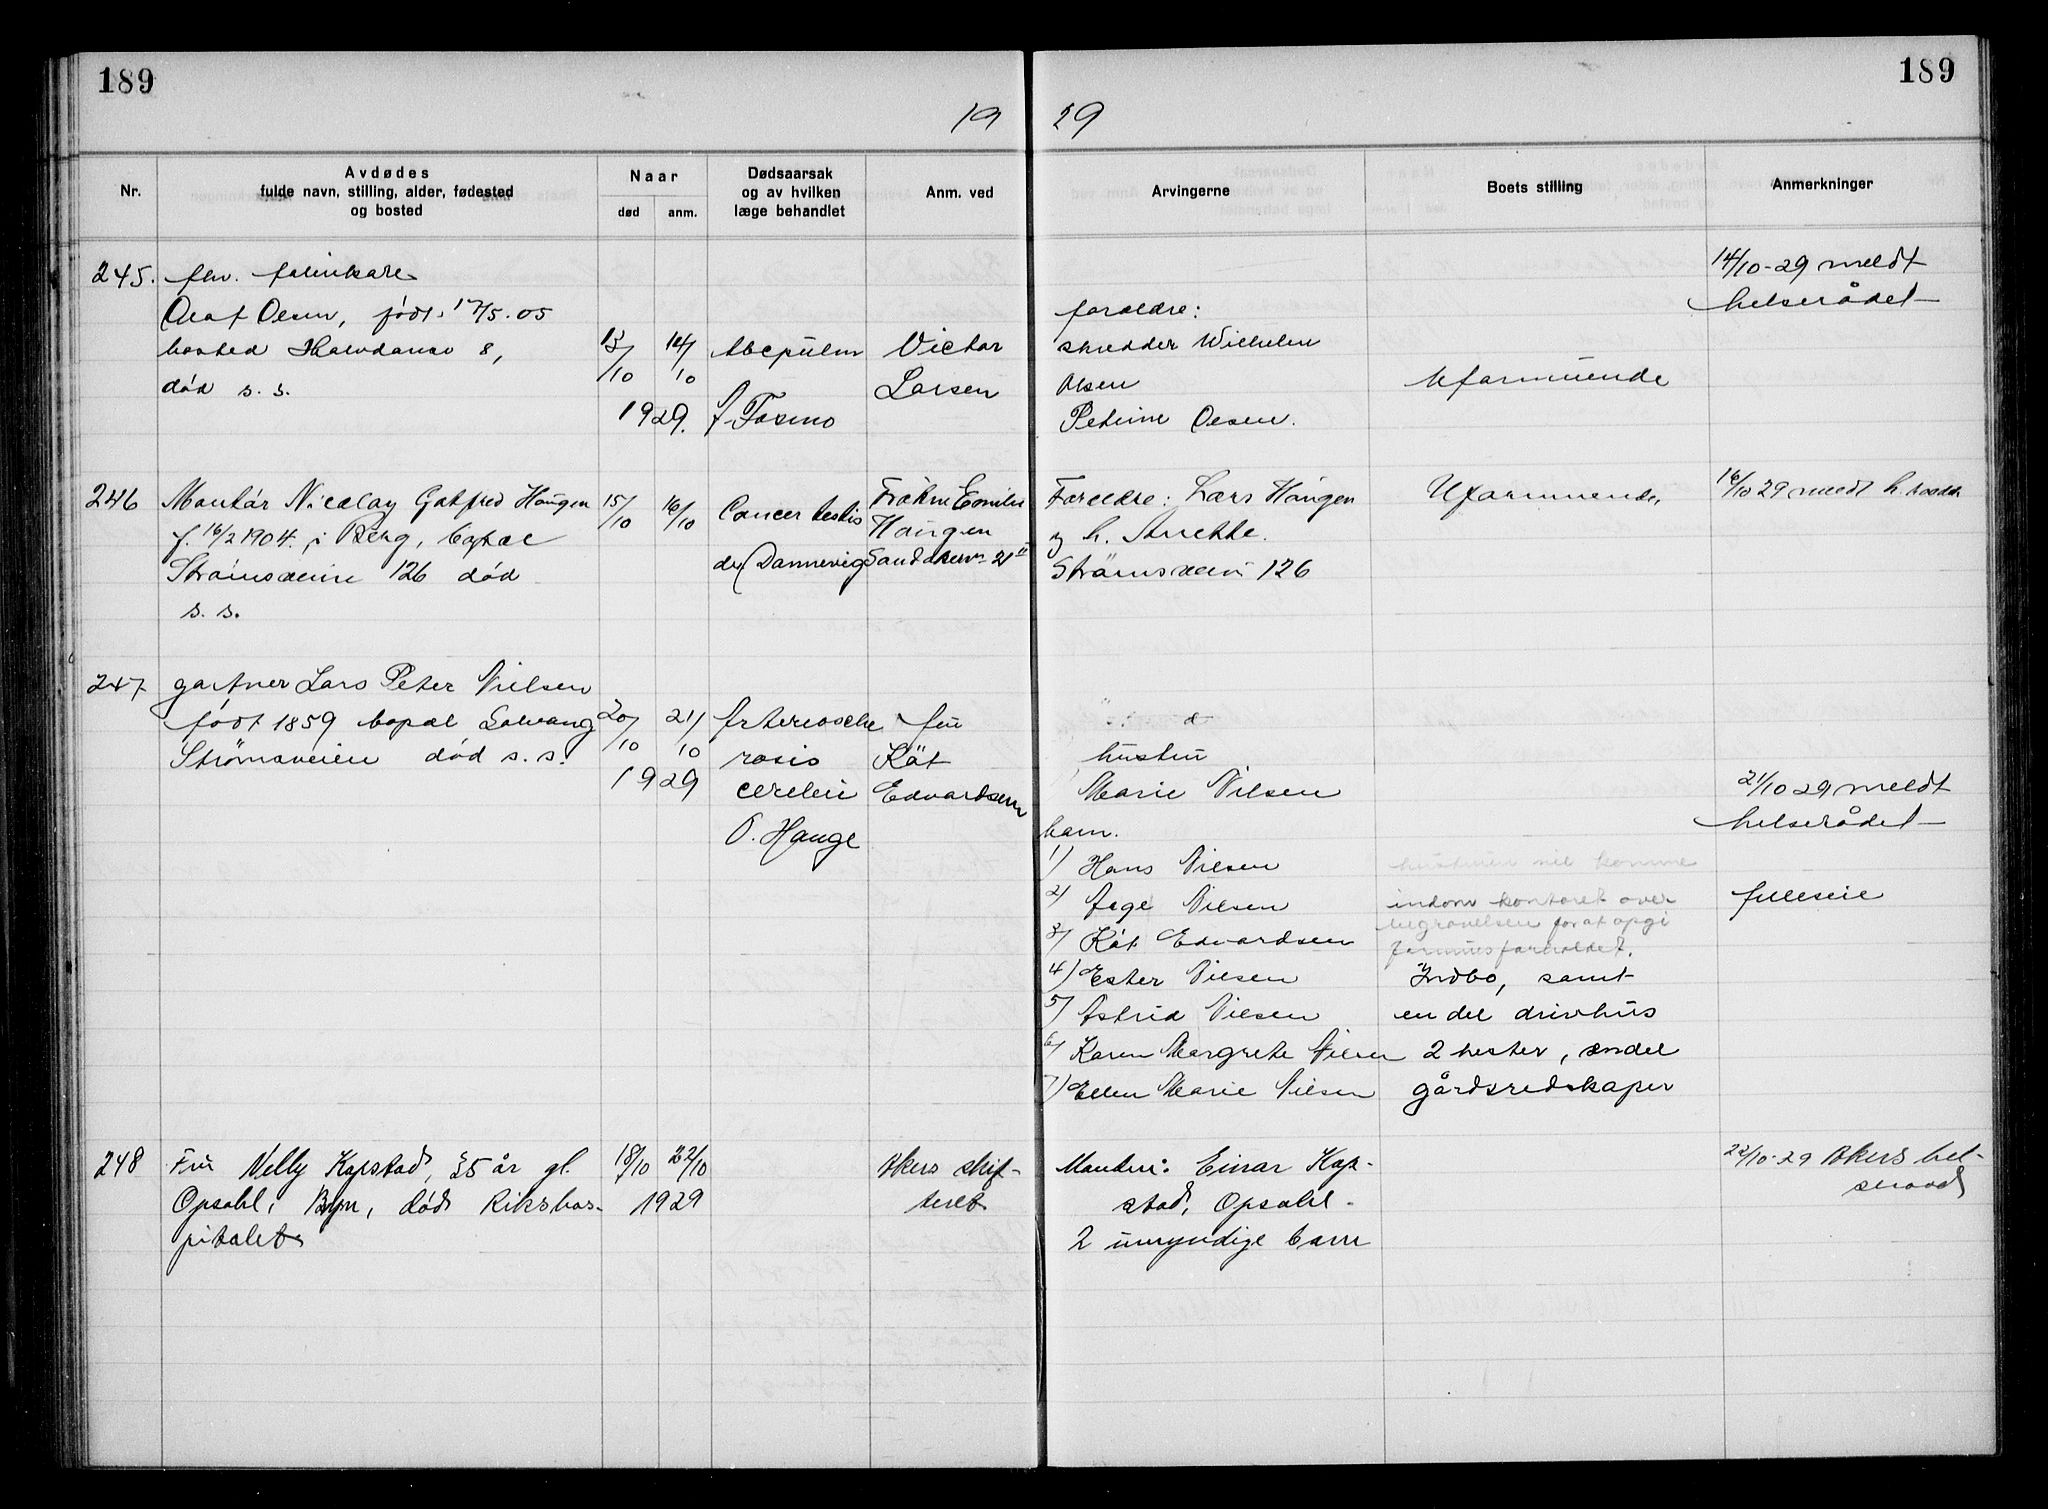 189
189
19 29
Nr.
Avdødes
fulde navn, stilling, alder, fødested
og bosted
Naar
død
anm.
Dødsaarsak
og av hvilken
læge behandlet
Anm. ved
Arvingerne
Boets stilling
Anmerkninger
245.
fhv.
Olaf Olsen, født 17/5. 05
bosted 8,
død s. s.
13/10
14/10
1929.
Fosmo
Victor
Larsen
foreldre:
skredder Wilhelm
Olsen
Petrine Olsen.
Uformuende
14/10-29 meldt
helserådet
246
Montør Nicolay Gotfred Haugen
f. 16/2 1904. i Berg, bopæl
Strømsveien 126 død
s. s.
15/10
16/10
Cancer testis
dr Dannevig
Frøken Emilie
Haugen
21
Foreldre: Lars Haugen
og h. Anette.
Strømsveien 126
Uformuende,
16/10 29 meldt h.
247
gartner Lars Peter Nielsen
født 1859 bopæl Solvang
Strømsveien død s. s.
20/10
21/10
1929
Arterioscle
rosis
cerebri
O. Hauge
fru
Kät
Edvardsen
hustru
Marie Nilsen
barn.
1) Hans Nilsen
2) Aage Nilsen
3) Kät Edvardsen
4) Ester Nilsen
5) Astrid Nilsen
6) Karen Margrete Nilsen
7) Ellen Marie Nilsen
hustruen vil komme
indom kontoret over
begravelsen for at opgi
formuesforholdet.
Indbo, samt
en del drivhus
2 hester, endel
gårdsredskaper
21/10 29 meldt
helserådet
felleseie
248
Fru Nelly Kopstad, 35 år gl.
Opsahl, Bryn, død Rikshos-
pitalet
18/10
22/10
1929
Akers skif-
teret
Manden: Einar Kop-
stad, Opsahl.
2 umyndige barn
22/10-29 Akers hel-
seraad